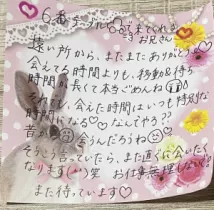 6番テーブル
お兄さん
遠い所から、またまたありがとう
会えてる時間よりも、移動&待ち
時間が長くて本当ごめんね
それでも、会えた時間はいつも特別な
時間になる♡なんでやろ??
昔
会うんだろうね
そうこう言っていたら、また直ぐに会いたく
なります(い)笑 お仕事無理しないで
また待っています♡